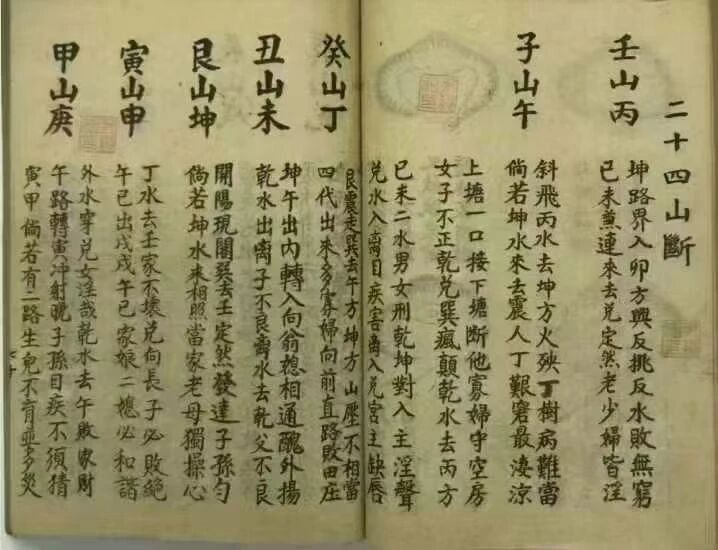 二十四山斷
壬山丙
坤路界入卯方興反挑反水敗無窮
己未兼連來去兌定然老少婦皆淫
子山午
斜飛丙水去坤方火殃丁樹病難當
倘若坤水來去震人丁艱窘最淒涼
上塘一口接下塘斷他寡婦守空房
女子不正乾兌巽瘋顛乾水去丙方
己未二水男女刑乾坤對入主淫聲
兌水入离目疾害离入兌宮主缺唇
癸山丁
艮震走巽去午方坤方山壓不相當
四代出來多寡婦向前直路敗田庄
丑山未
坤午出內轉入向翁媳相通醜外揚
乾水出离子不良离水去乾父不良
艮山坤
開陽現闇癸去壬定然發達子孫勻
倘若坤水來相照當家老母獨操心
寅山申
丁水去壬家不壞兌向長子必敗絕
午已出戌戌午已家娘二媳必和諧
甲山庚
外水穿兌女淫哉乾水去午敗家財
午路轉寅冲射晄子孫目疾不須猜
寅甲倘若有二路生兒不育並多災